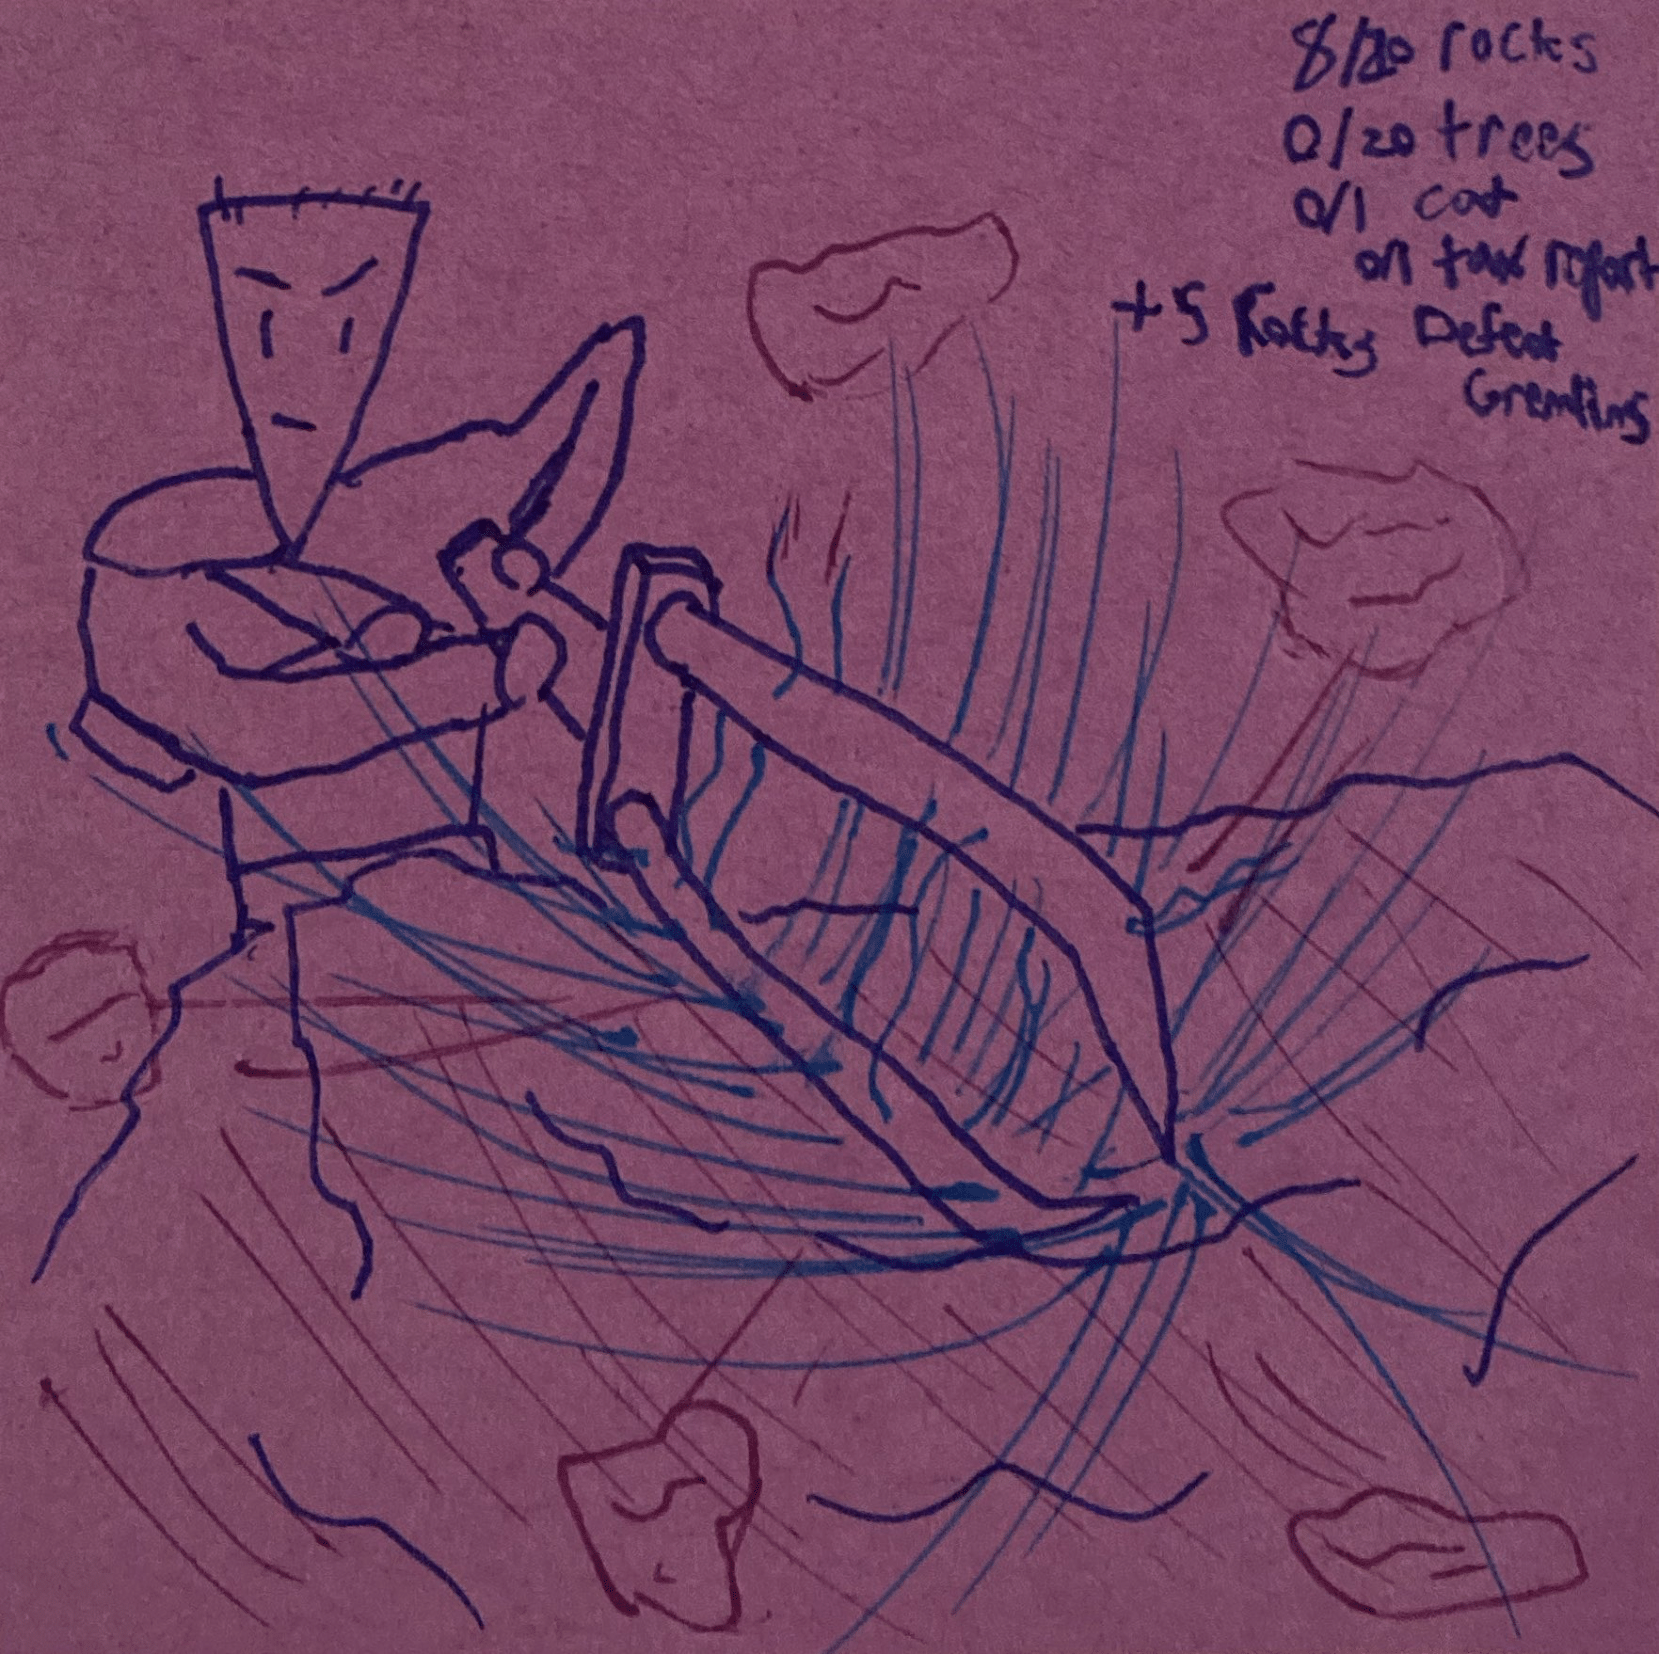 8/20 rocks
0/20 trees
0/1 cat
on tax report
+5 Rocks Defeat
Gremlins